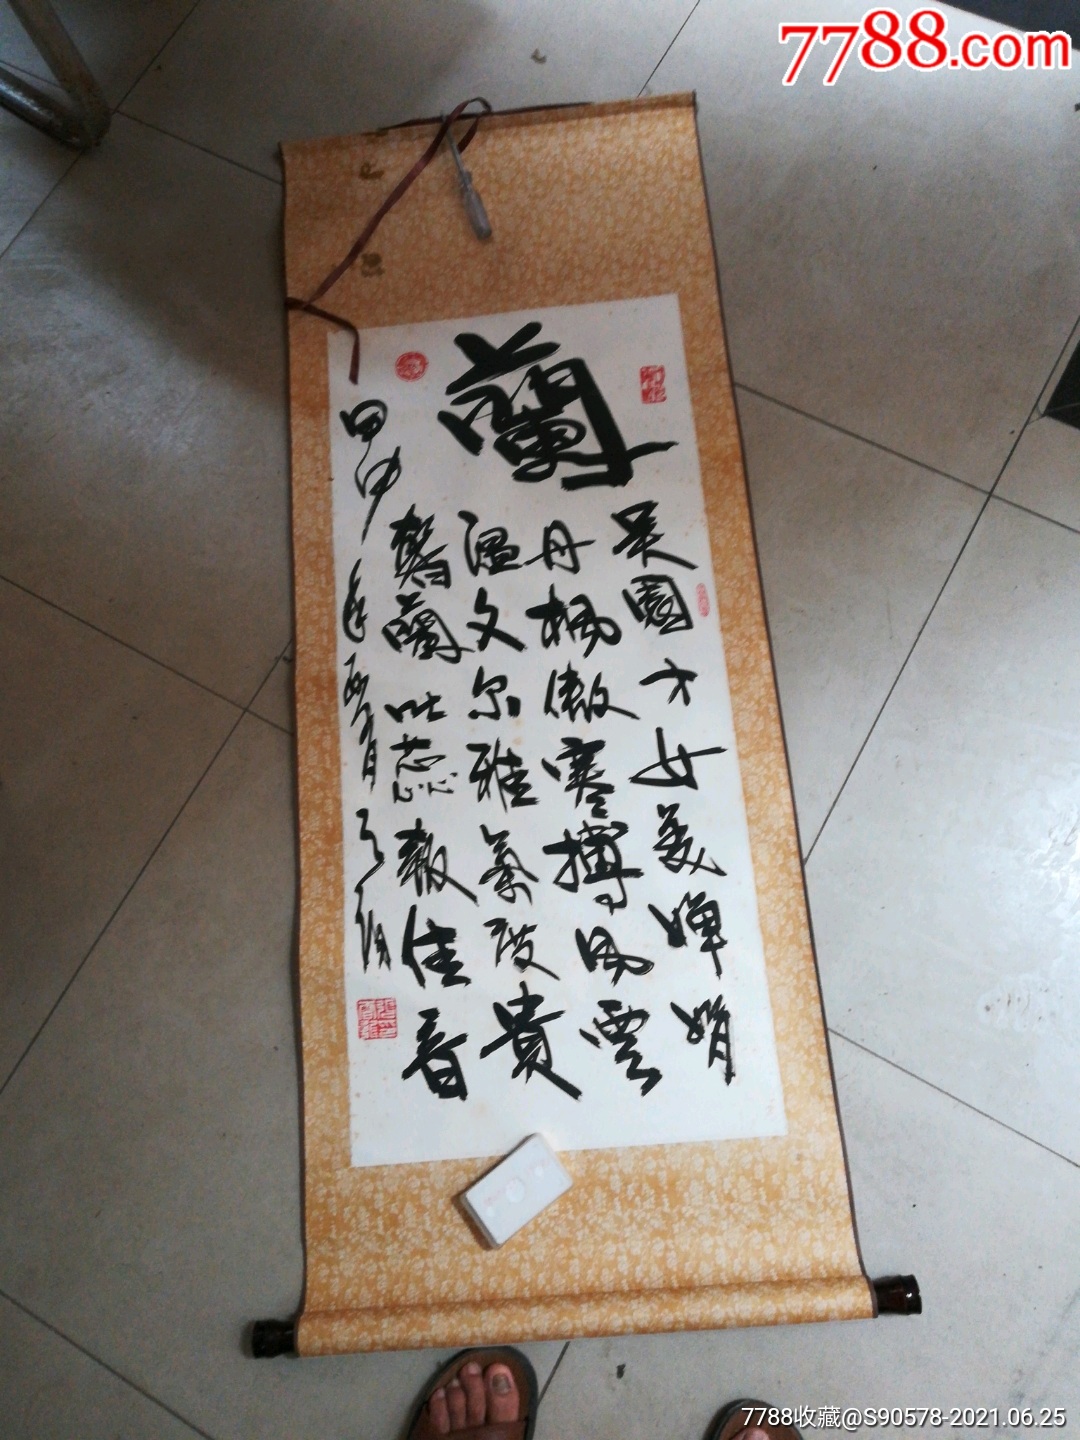 7788.com
蘭
吴國才女美婵娟
丹楓傲寒搏風雲
温文尔雅氣度貴
馨蘭吐蕊報佳音
甲申年
7788收藏@S90578-2021.06.25